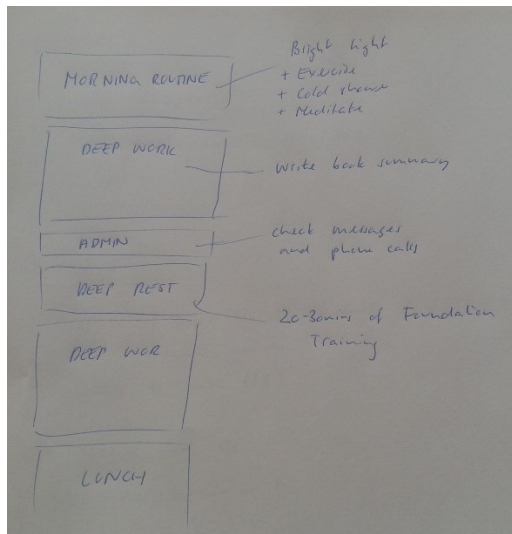 MORNING ROUTINE
Bright light
+ Exercise
+ Cold shower
+ Meditate
DEEP WORK
write book summary
ADMIN
check messages
and phone calls
DEEP REST
20-30mins of Foundation
Training
DEEP WOR
LUNCH